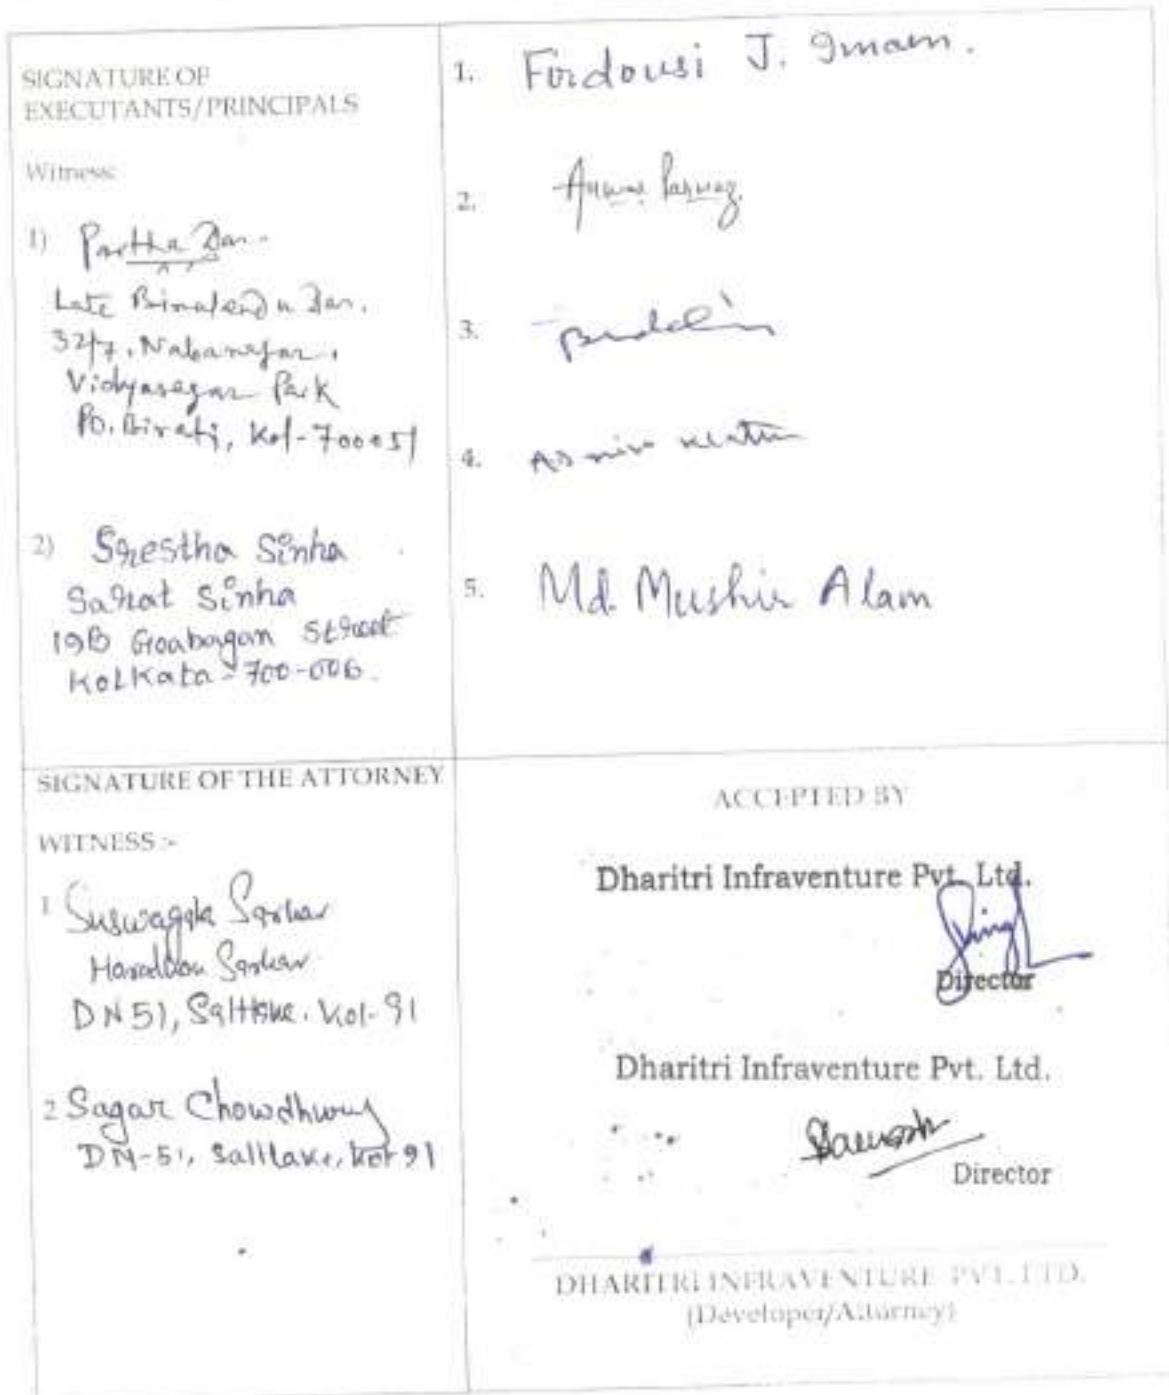 SIGNATURE OF
EXECUTANTS/PRINCIPALS
Witness:
1) Partha Das
Late Bimalendu Das.
32/7, Nabanagar,
Vidyasagar Park
PO. Birati, Kol-700051
2) Srestha Sinha
Sarat Sinha
19B Goabagan Street
Kolkata-700-006.
1. Firdousi J. Imam.
2. Anwar Parwez
3.
4.
5. Md. Mushir Alam
SIGNATURE OF THE ATTORNEY
WITNESS :-
1 Suswagata Sarkar
Haradhan Sarkar
DN 51, Saltlake, Kol-91
2 Sagar Chowdhury
DN-51, Saltlake, Kol 91
ACCEPTED BY
Dharitri Infraventure Pvt. Ltd.
Director
Dharitri Infraventure Pvt. Ltd.
Director
DHARITRI INFRAVENTURE PVT. LTD.
(Developer/Attorney)